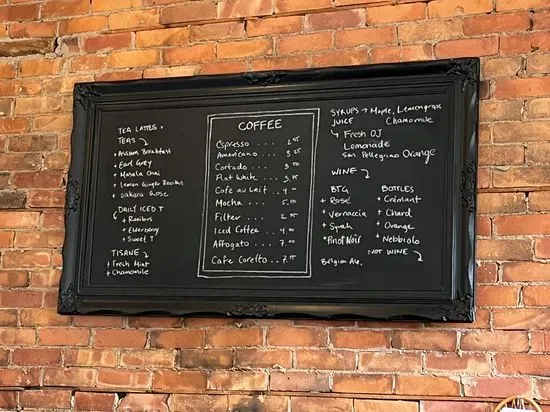 TEA LATTES +
TEAS
+ Assam Breakfast
+ Earl Grey
+ Masala Chai
+ Lemon Ginger Rooibus
+ Sakara Rose
DAILY ICED T
+ Rooibus
+ Elderberry
+ Sweet T
TISANE
+ Fresh Mint
+ Chamomile
COFFEE
Espresso . . . 2.95
Americano . . . 3.25
Cortado . . . 3.50
Flat White . . 3.75
Cafe au Lait . . 4.00
Mocha . . . 5.00
Filter . . . 2.95
Iced Coffee . . 4.00
Affogato . . . . 7.00
Cafe Coretto . . 7.15
SYRUPS → Maple, Lemongrass
JUICE Chamomile
Fresh OJ
Lemonade
San Pellegrino Orange
WINE
BTG
+ ROSÉ
+ Vernaccia
+ Syrah
+ Pinot Noir
BOTTLES
+ Crémant
+ Chard
+ Orange
+ Nebbiolo
NOT WINE
Belgian Ale.